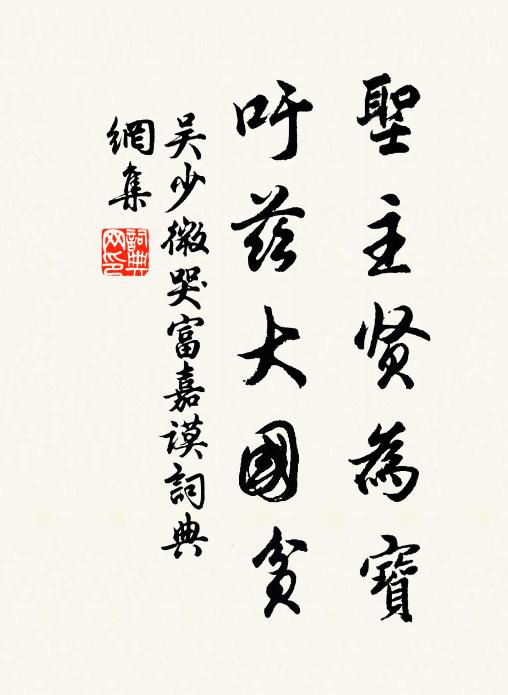 聖主賢為寶
吁茲大國貧
吴少微哭富嘉謨詞典
網集
詞典
网印